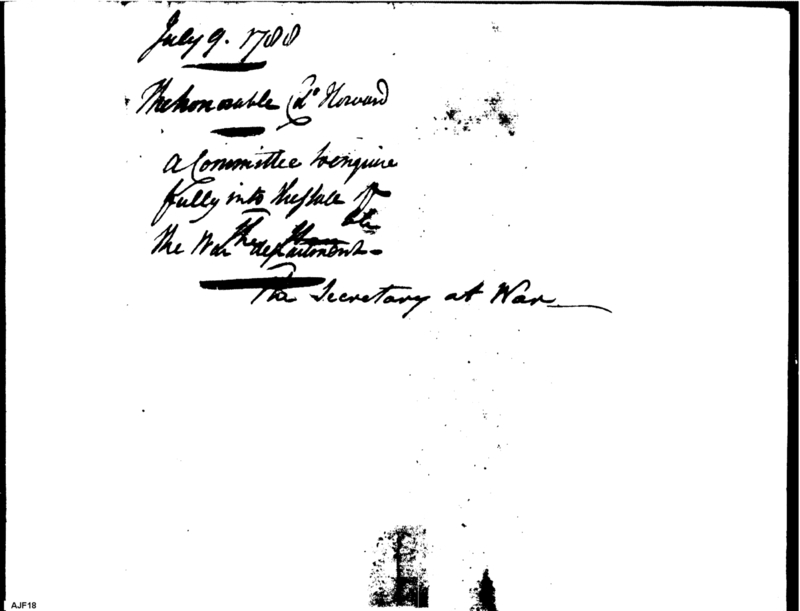 July 9. 1788
The honorable Col. Howard
A Committee to enquire
fully into the state of
the War department
The Secretary at War
AJF18